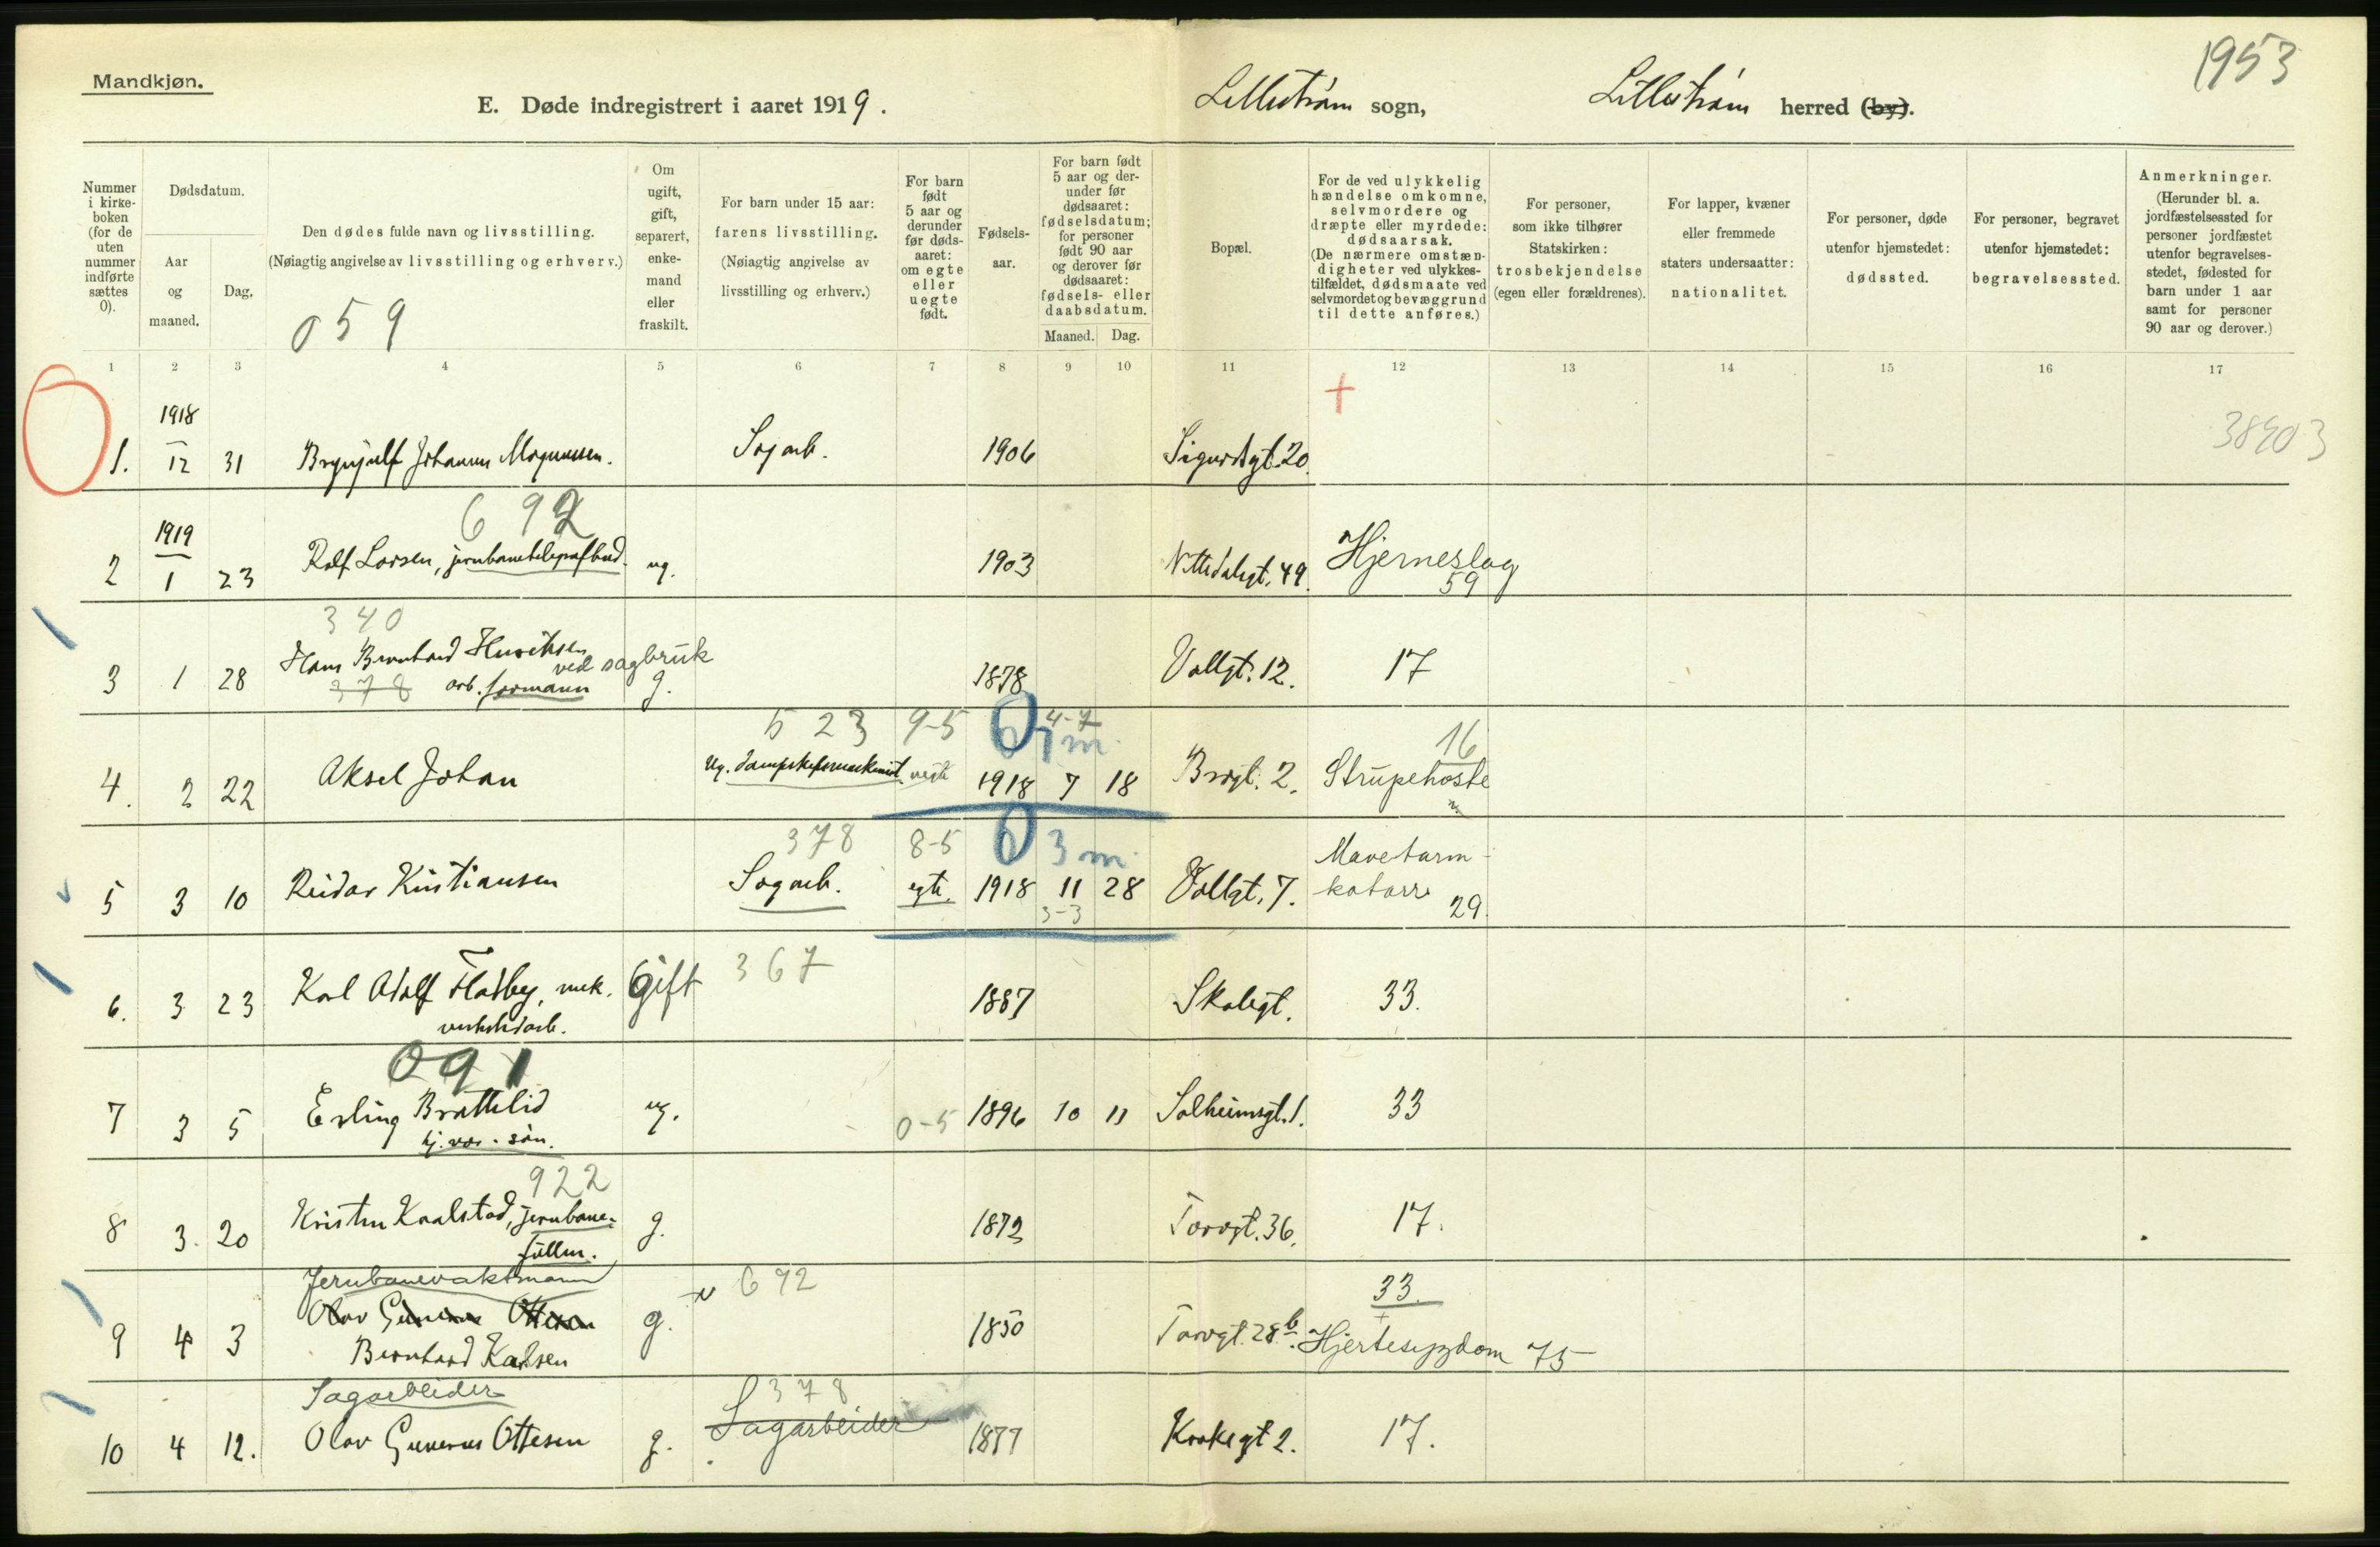 Mandkjøn.
1953
E. Døde indregistrert i aaret 1919.
Lillestrøm sogn,
Lillestrøm herred (by).
Nummer i kirke-boken (for de uten nummer indførte sættes 0).
Dødsdatum.
Aar og maaned.
Dag.
Den dødes fulde navn og livsstilling.
(Nøiagtig angivelse av livsstilling og erhverv.)
059
Om ugift, gift, separert, enke-mand eller fraskilt.
For barn under 15 aar: farens livsstilling.
(Nøiagtig angivelse av livsstilling og erhverv.)
For barn født 5 aar og derunder før døds-aaret: om egte eller uegte født.
Fødsels-aar.
For barn født 5 aar og der-under før dødsaaret: fødselsdatum; for personer født 90 aar og derover før dødsaaret: fødsels- eller daabsdatum.
Maaned. Dag.
Bopæl.
For de ved ulykkelig hændelse omkomne, selvmordere og dræpte eller myrdede: dødsaarsak.
(De nærmere omstæn-digheter ved ulykkes-tilfældet, dødsmaate ved selvmordet og bevæggrund til dette anføres.)
For personer, som ikke tilhører Statskirken: trosbekjendelse (egen eller forældrenes).
For lapper, kvæner eller fremmede staters undersaatter: nationalitet.
For personer, døde utenfor hjemstedet: dødssted.
For personer, begravet utenfor hjemstedet: begravelsessted.
Anmerkninger.
(Herunder bl. a. jordfæstelsessted for personer jordfæstet utenfor begravelses-stedet, fødested for barn under 1 aar samt for personer 90 aar og derover.)
1 2 3 4 5 6 7 8 9 10 11 12 13 14 15 16 17
1918
1. 12 31 Brynjulf Johannes Magnussen. Sagarb. 1906 Sigurdsgt. 20 38403
692
1919
2 1 23 Rolf Larsen, jernbanetelegrafbud. ug. 1903 Nittedalsgt. 49. Hjerneslag 59
340
3 1 28 Hans Bernhard Henriksen ved sagbruk
378 arb. formann g. 1878 Vollgt. 12. 17
523 9-5 0 4-7 7 m. 16
4. 2 22 Aksel Johan Ug. dampskipsmaskinist. uegte 1918 7 18 Brogt. 2. Strupehoste
378 8-5 0 3 m.
5 3 10 Reidar Kristiansen Sagarb. egte. 1918 11 28 Vollgt. 7. Mavetarm-katarr 29.
3-3
367
6. 3 23 Karl Adolf Flatby, mek. verkstedarb. Gift 1887 Skolegt. 33.
091
7 3 5 Erling Brattelid ug. 0-5 1896 10 11 Solheimsgt. 1. 33
hj. vær. søn.
922
8 3. 20 Kristen Kaalstad, jernbane-fullm. g. 1872 Torvgt. 36. 17.
Jernbanevaktmann
692 33.
9 4 3 Olav Gunerius Ottesen g. 1850 Torvgt. 28 b. Hjertesygdom 75
Bernhard Karlsen
Sagarbeider 378
10 4 12. Olav Gunerius Ottesen g. Sagarbeider 1877 Krokegt 2. 17.